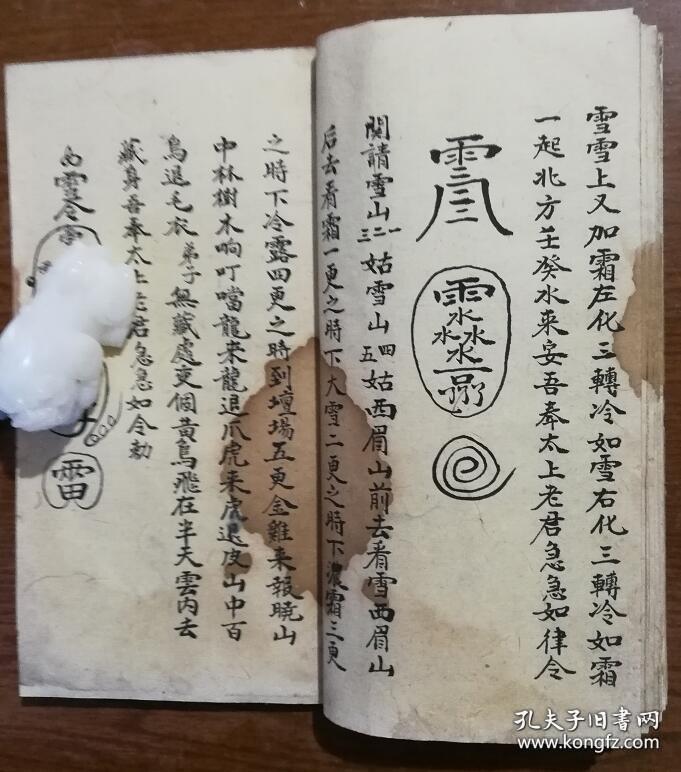 雪雪上又加霜左化三轉冷如雪右化三轉冷如霜
一起北方壬癸水来妄吾奉太上老君急急如律令
関請雪山一二三姑雪山四五姑西眉山前去看雪西眉山
后去看霜一更之時下大雪二更之時下濃霜三更
之時下冷露四更之時到壇場五更金雞来報曉山
中林樹木响叮噹龍来龍退爪虎来虎退皮山中百
鳥退毛衣弟子無藏處变個黄鳥飛在半天雲内去
藏身吾奉太上老君急急如令勅
雷
孔夫子旧書网
www.kongfz.com